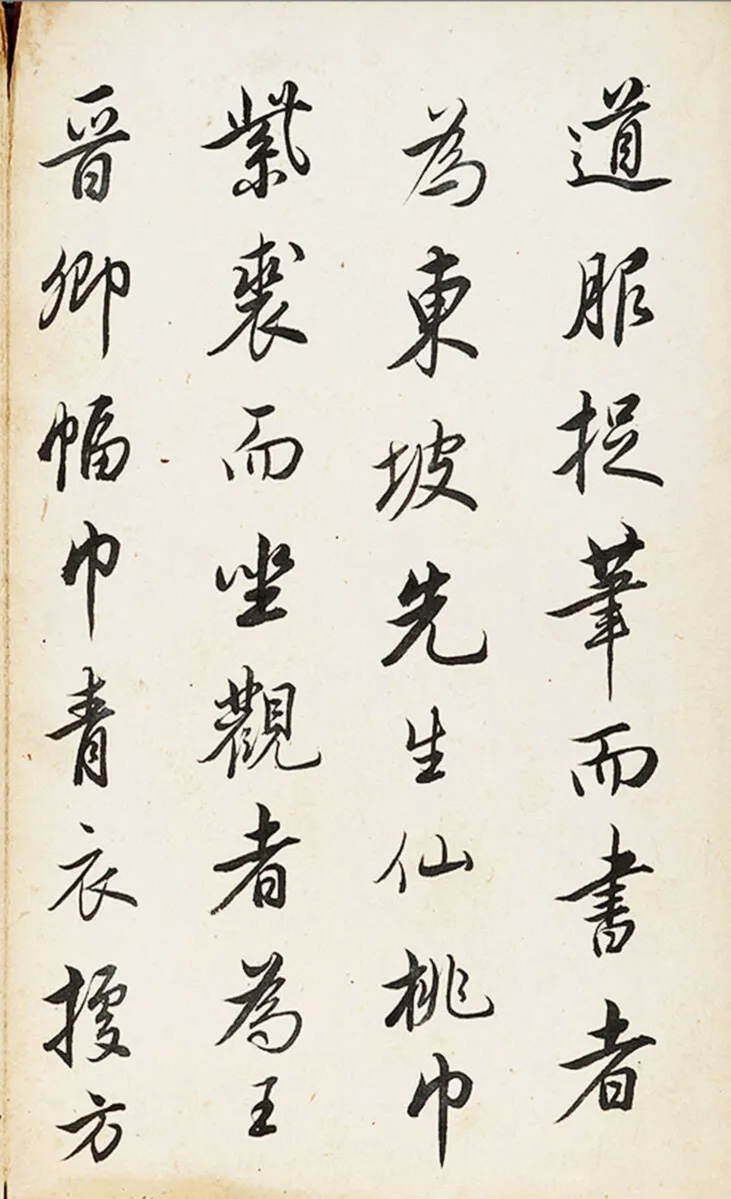 道服捉筆而書者
為東坡先生仙桃巾
紫裘而坐觀者為王
晉卿幅巾青衣據方